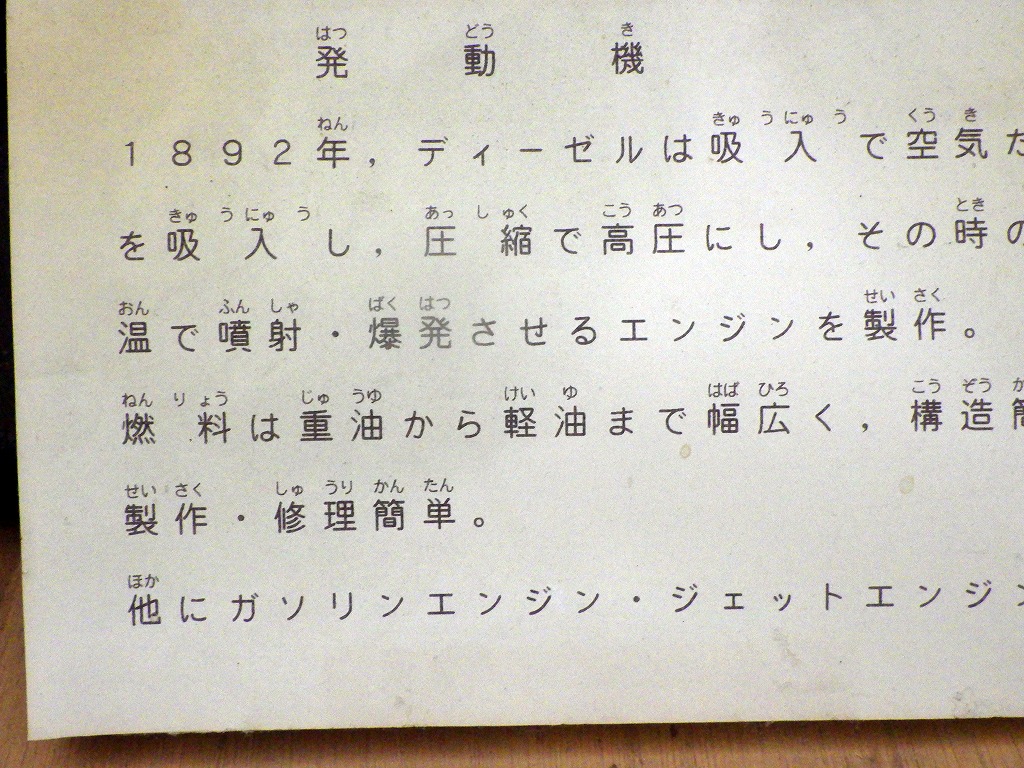 発動機
1892年，ディーゼルは吸入で空気だ
を吸入し，圧縮で高圧にし，その時の
温で噴射・爆発させるエンジンを製作。
燃料は重油から軽油まで幅広く，構造簡
製作・修理簡単。
他にガソリンエンジン・ジェットエンジン